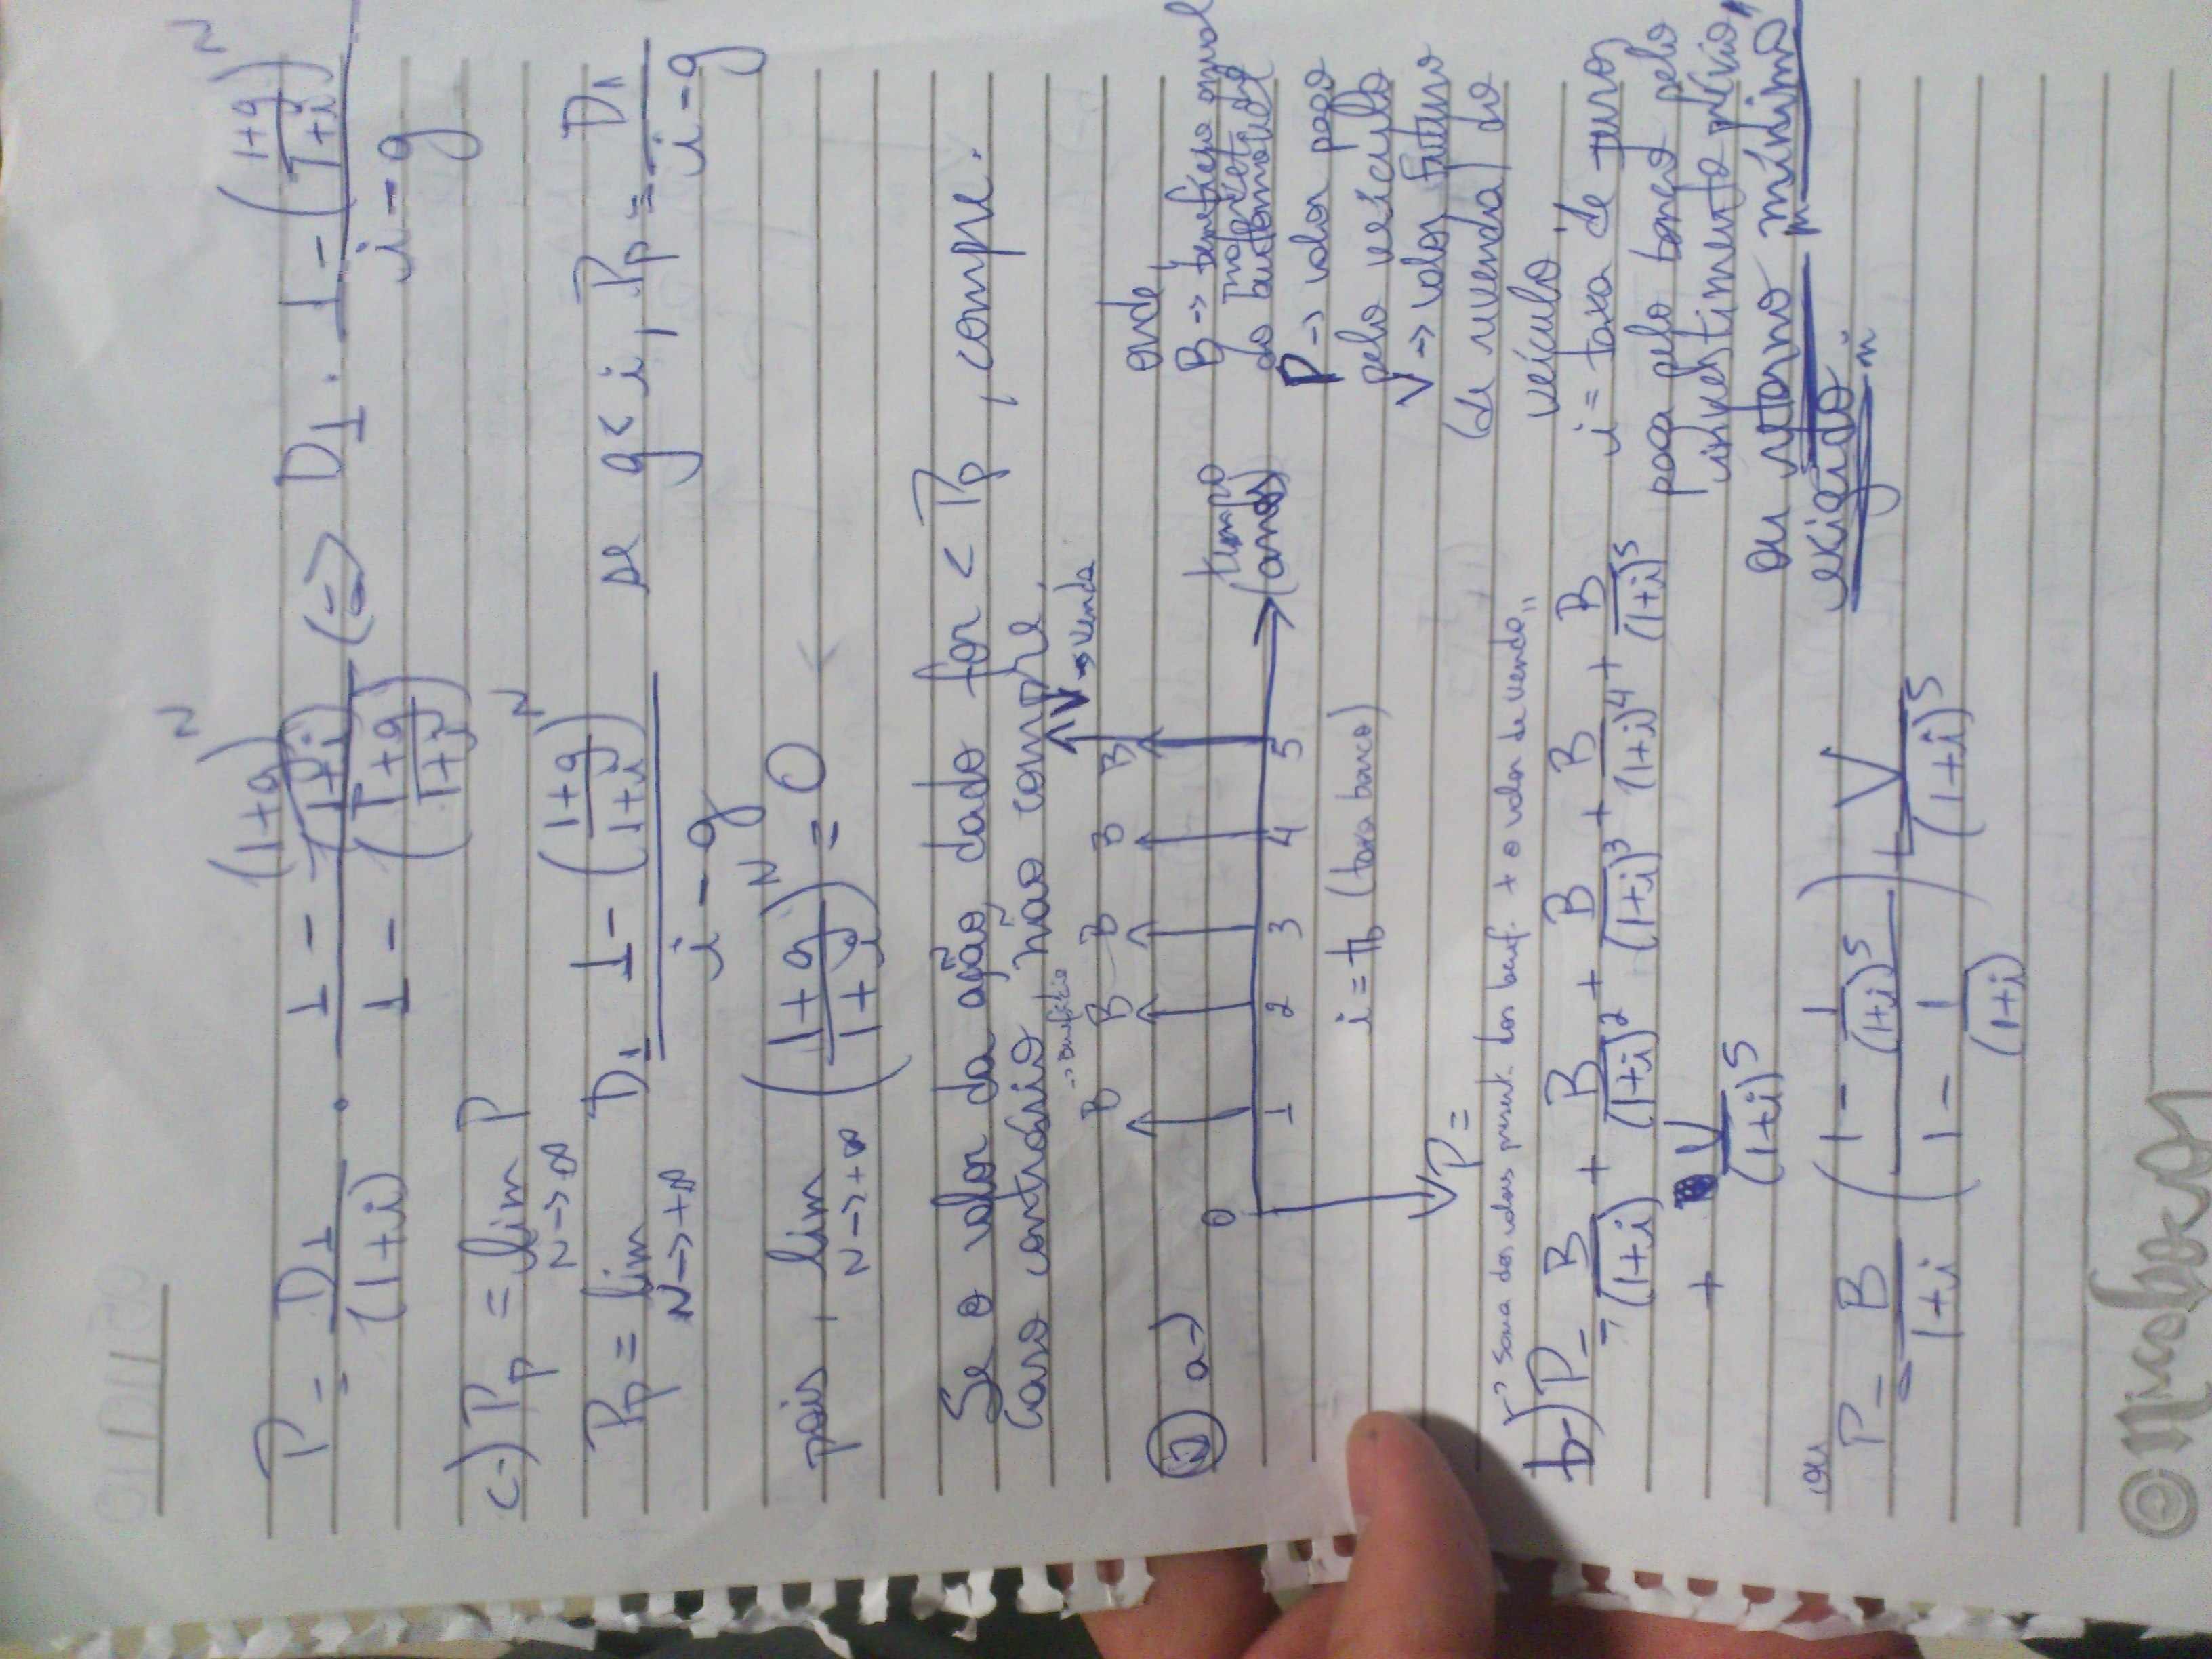 P = D₁/(1+i) · (1 - ((1+g)/(1+i))^N)/(1 - ((1+g)/(1+i))) (=) D₁ · (1 - ((1+g)/(1+i))^N)/(i - g)
c-) Pp = lim N→+∞ P
Pp = lim N→+∞ D₁ (1 - ((1+g)/(1+i))^N)/(i - g) se g < i, Pp = D₁/(i - g)
pois, lim N→+∞ ((1+g)/(1+i))^N = 0
Se o valor da ação, dado for < Pp, compre.
Caso contrário não compre,
a-)
→ benefício
B B B B B V → venda
0 1 2 3 4 5 tempo (anos)
i = tb (taxa banco)
P =
onde,
B → benefício anual
do automóvel
P → valor pago
pelo veículo
V → valor futuro
(de revenda) do
veículo.
i = taxa de juros
paga pelo banco pelo
investimento prévio,,
ou retorno "mínimo
exigido"
"Soma dos valores present. dos benf. + o valor de venda,,
b-) P = B/(1+i) + B/(1+i)² + B/(1+i)³ + B/(1+i)⁴ + B/(1+i)⁵
+ V/(1+i)⁵
ou
P = B/(1+i) ((1 - 1/(1+i)⁵)/(1 - 1/(1+i))) + V/(1+i)⁵